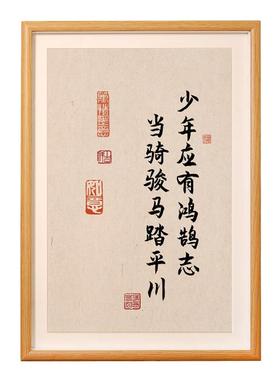 少年应有鸿鹄志
当骑骏马踏平川
如意